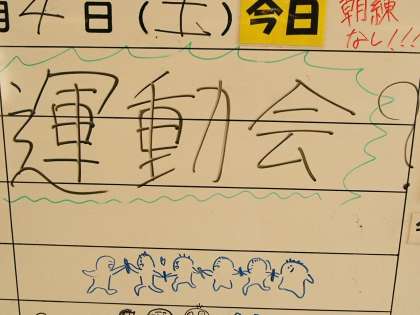 月4日(土) 今日 朝練
なし!!!
運動会